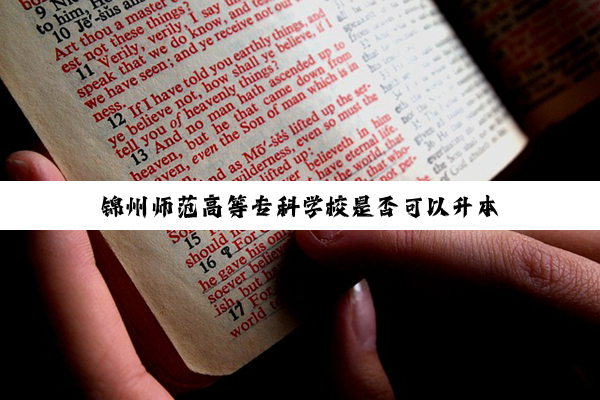 9 Nic
to him, How
10 Jē'-ṣŭs an
Art thou a master o
est not these things?
11 Verily, verily, I say un
speak that we do know, and tes
we have seen; and ye receive not our
ness.
12 If I have told you earthly things, and
ye believe not, how shall ye believe, if I
tell you of heavenly things?
13 And no man hath ascended up to
heaven, but he that came down from
heaven, even the Son of man which is in
and as Mō'-ṣĕṣ lifted up the ser-
wilderness, even so must the
lifted up:
believeth in him
have eternal life.
the world, that
锦州师范高等专科学校是否可以升本
15
should n
16 For
he gave his on
soever believe
ish, but h
17 For
world to